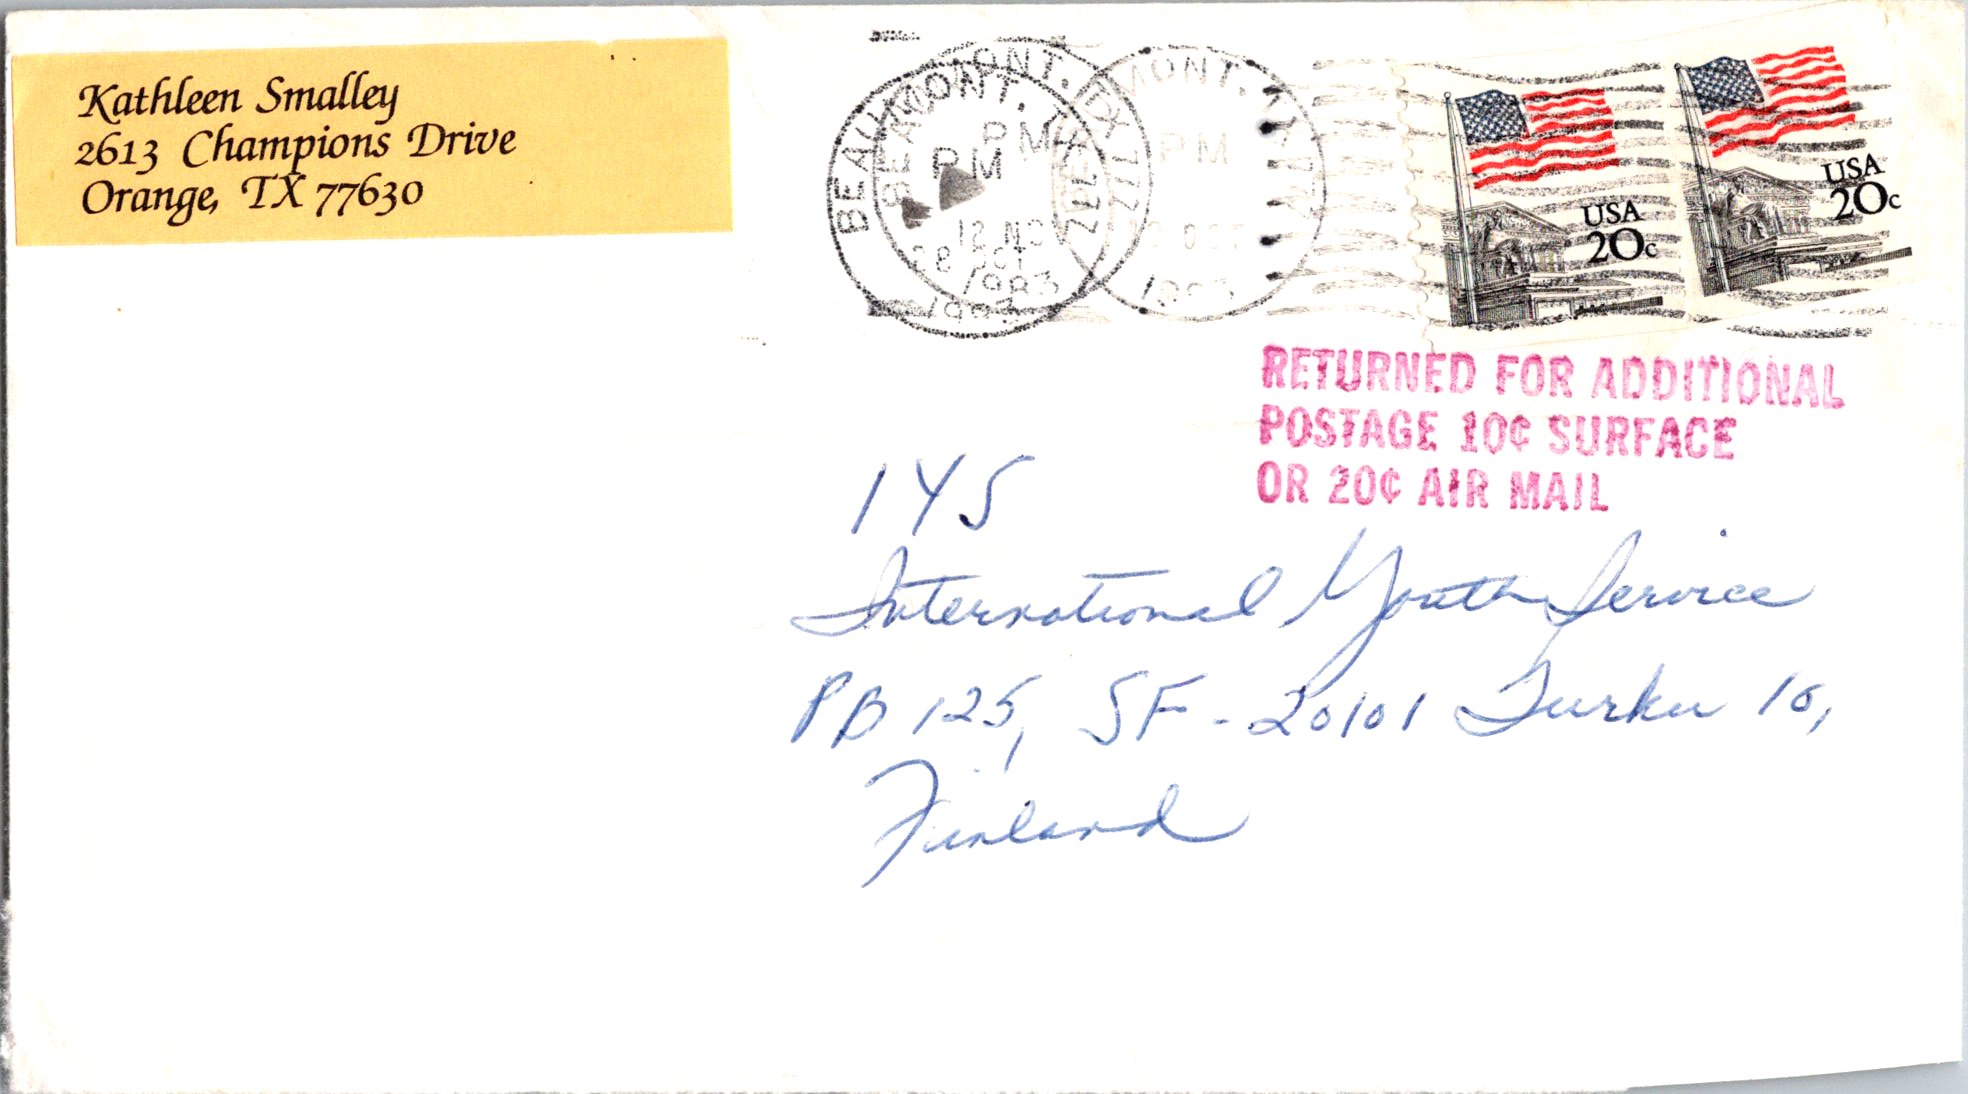 Kathleen Smalley
2613 Champions Drive
Orange, TX 77630
BEAUMONT, TX 777
PM
28 OCT
1983
BEAUMONT, TX 777
PM
12 NO
1983
PM
OCT
USA
20c
USA
20c
RETURNED FOR ADDITIONAL
POSTAGE 10¢ SURFACE
OR 20¢ AIR MAIL
IYS
International Youth Service
PB 125, SF-20101 Turku 10,
Finland